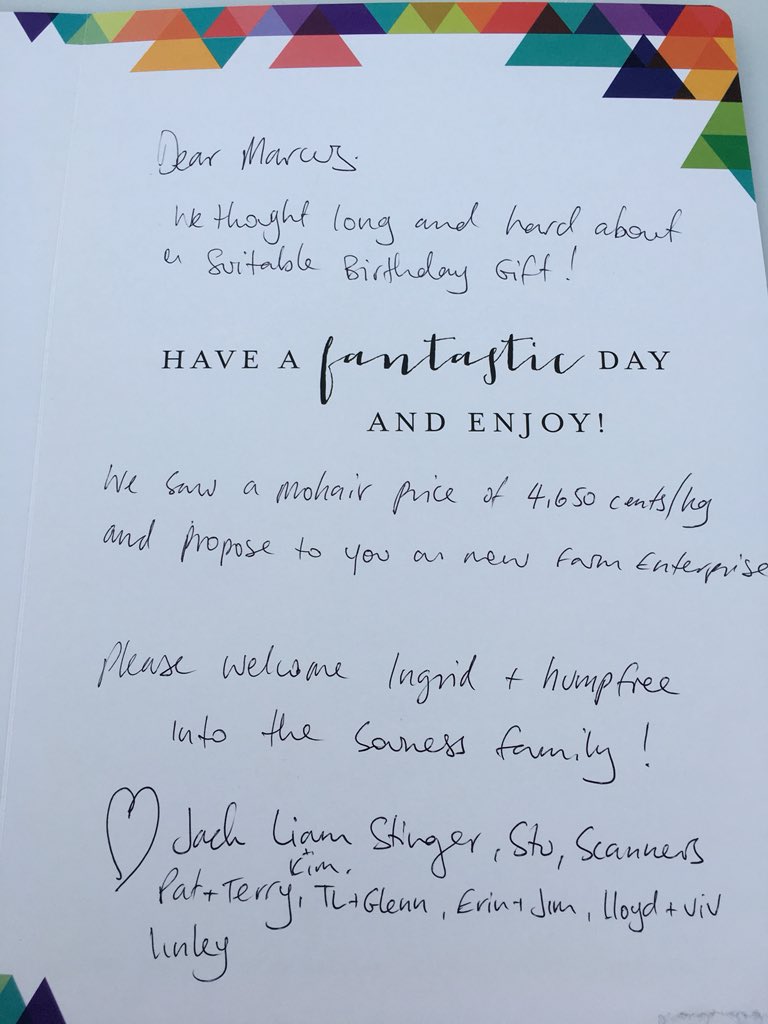 Dear Marcus.
We thought long and hard about
a Suitable Birthday Gift!
HAVE A fantastic DAY
AND ENJOY!
We saw a mohair price of 4,650 cents/kg
and propose to you a new Farm Enterprise
Please welcome Ingrid + humpfree
into the Sounness family!
Jack Liam Stinger, Stu, Scanners
+ Kim.
Pat + Terry, TL + Glenn, Erin + Jim, Lloyd + Viv
Linley